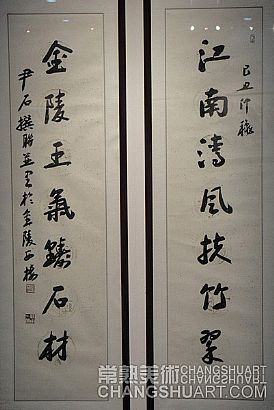 己丑仲
江南风扶竹翠
金陵王氣臻石材
尹石撰聯並於金陵
常熟美術 CHANGSHUART.COM
CHANGSHUART.COM